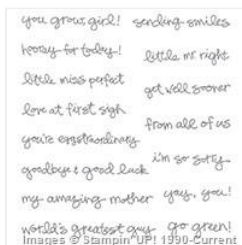 you grow, girl!
sending smiles
hooray for today!
little mr right
little miss perfect
get well sooner
love at first sigh
from all of us
you're eggstraordinary
i'm so sorry
goodbye & good luck
my amazing mother
yay, you!
world's greatest guy
go green!
Images © Stampin' UP! 1990-Current